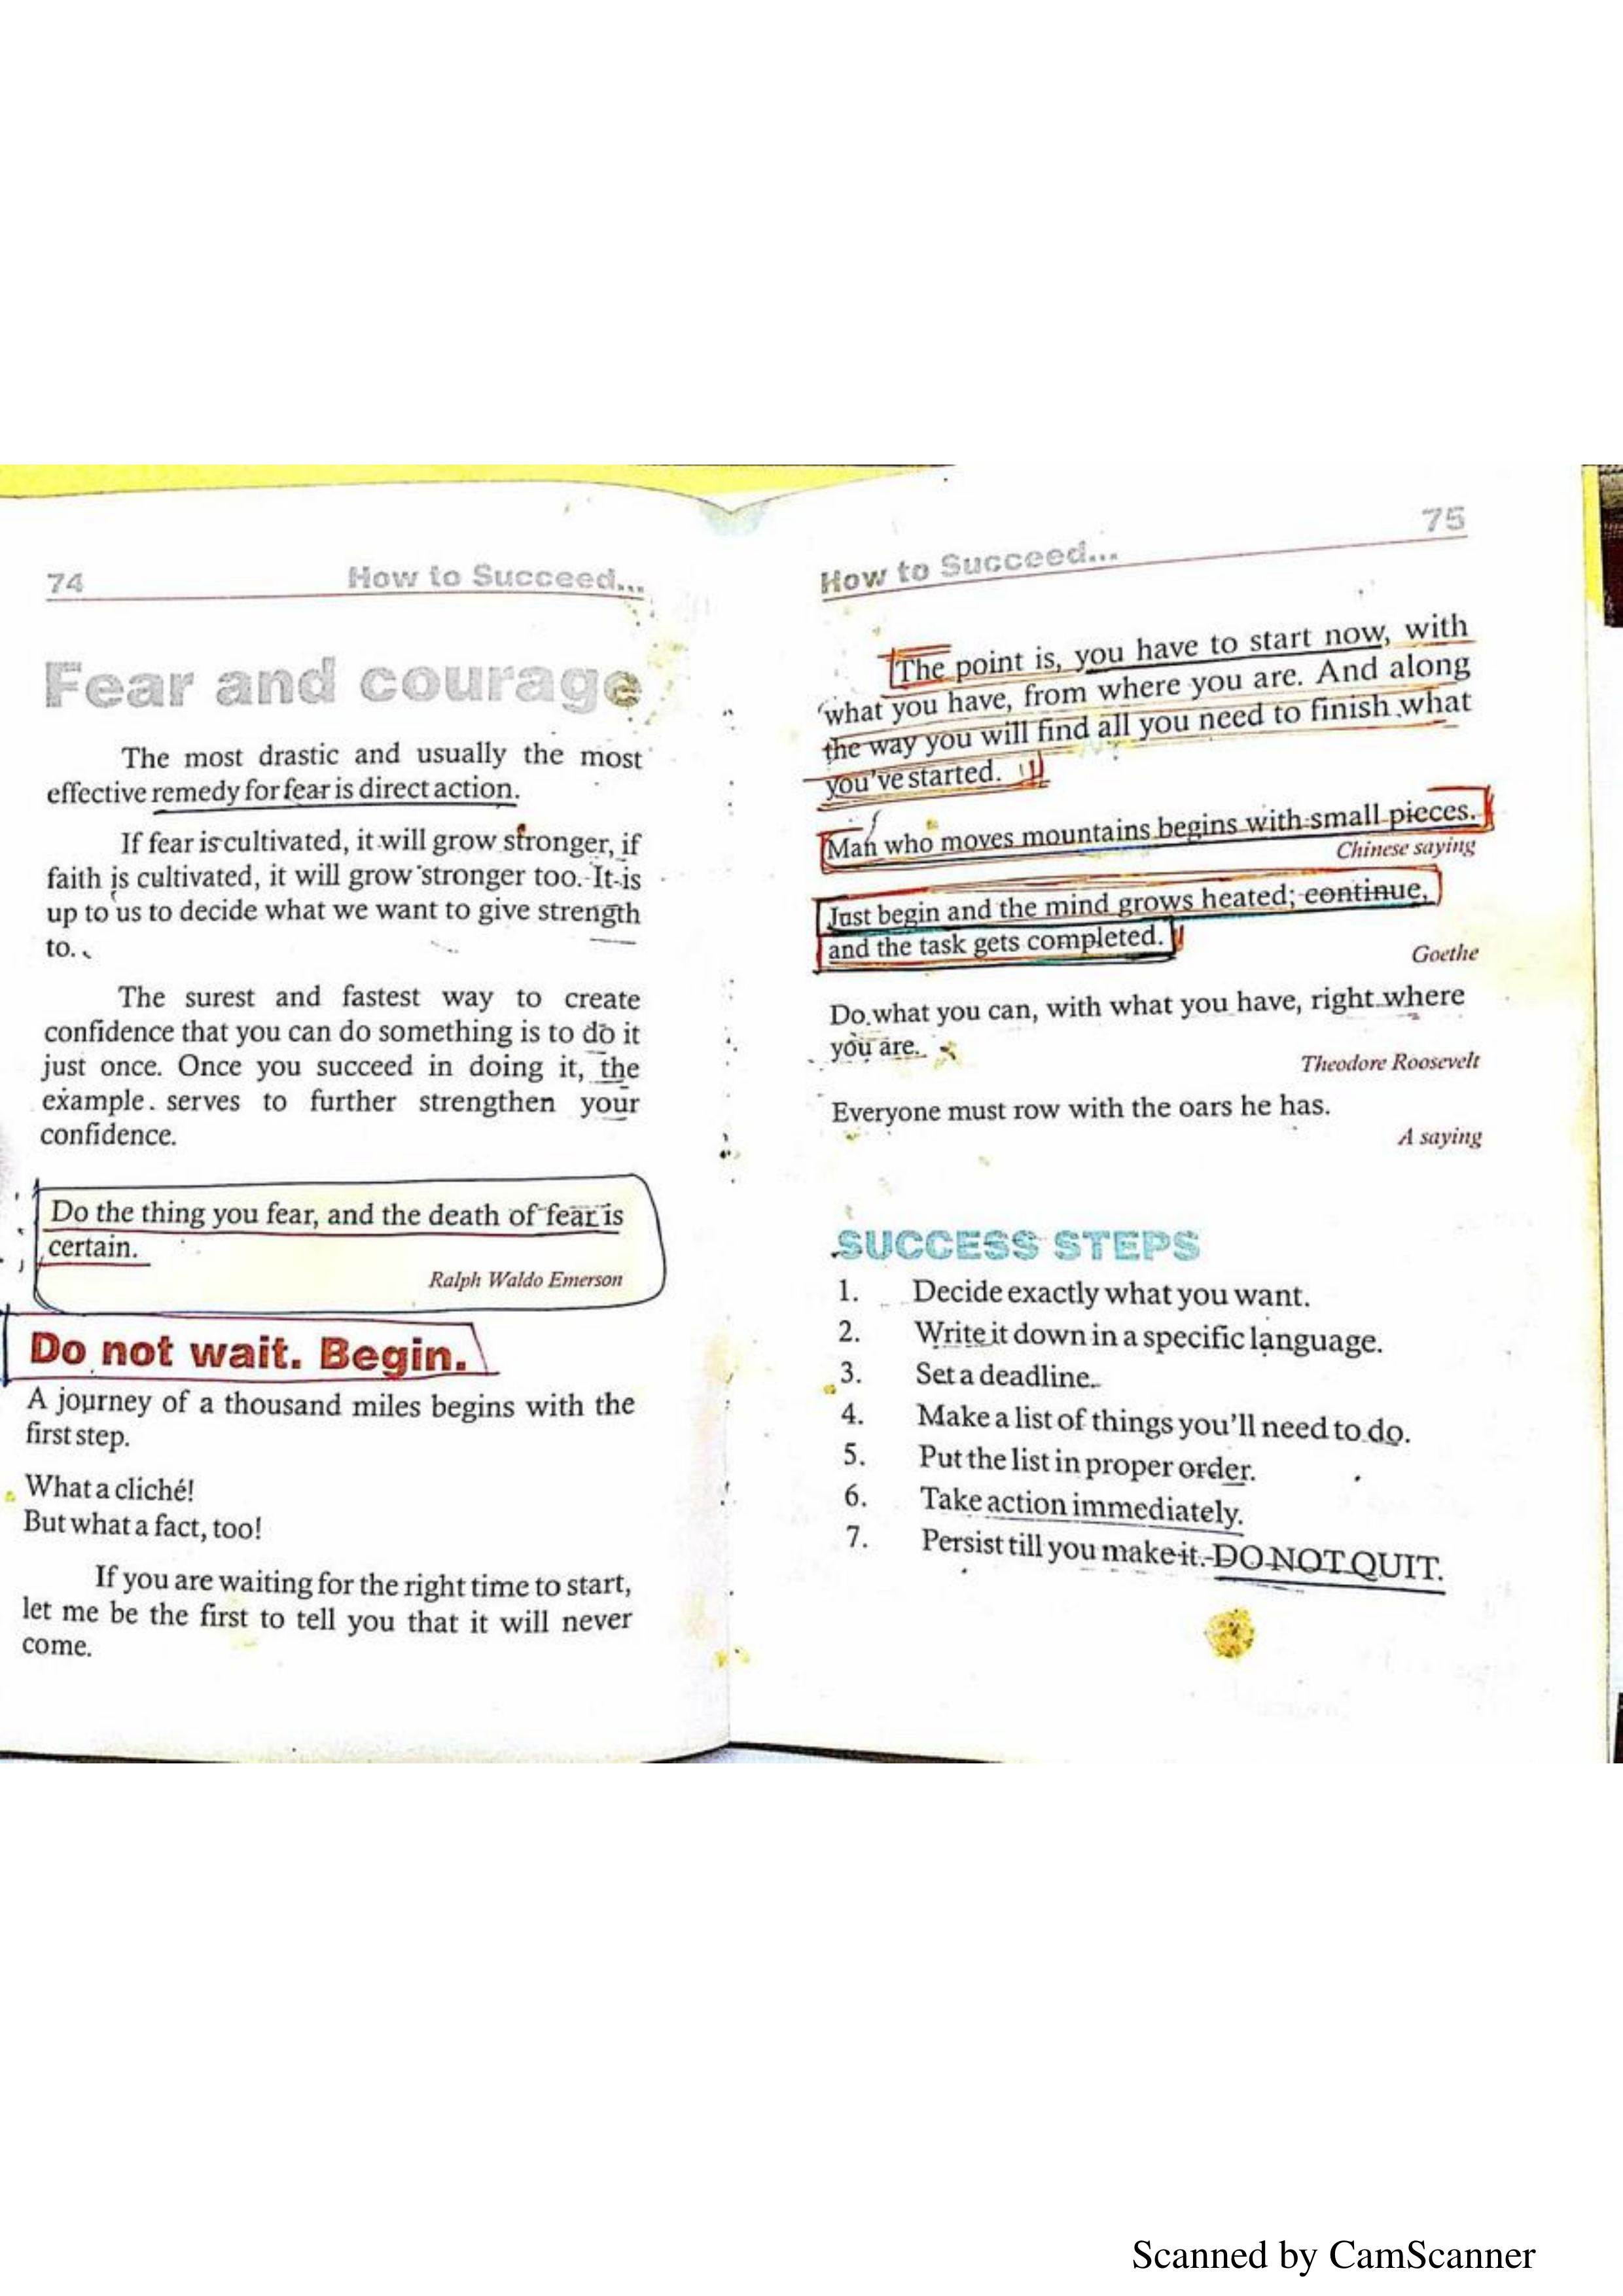 74
How to Succeed...
Fear and courage
The most drastic and usually the most
effective remedy for fear is direct action.
If fear is cultivated, it will grow stronger, if
faith is cultivated, it will grow stronger too. It is
up to us to decide what we want to give strength
to.
The surest and fastest way to create
confidence that you can do something is to do it
just once. Once you succeed in doing it, the
example serves to further strengthen your
confidence.
Do the thing you fear, and the death of fear is
certain.
Ralph Waldo Emerson
Do not wait. Begin.
A journey of a thousand miles begins with the
first step.
What a cliché!
But what a fact, too!
If you are waiting for the right time to start,
let me be the first to tell you that it will never
come.
How to Succeed...
75
The point is, you have to start now, with
what you have, from where you are. And along
the way you will find all you need to finish what
you've started.
Man who moves mountains begins with small pieces.
Chinese saying
Just begin and the mind grows heated; continue,
and the task gets completed.
Goethe
Do what you can, with what you have, right where
you are.
Theodore Roosevelt
Everyone must row with the oars he has.
A saying
SUCCESS STEPS
1. Decide exactly what you want.
2. Write it down in a specific language.
3. Set a deadline.
4. Make a list of things you'll need to do.
5. Put the list in proper order.
6. Take action immediately.
7. Persist till you make it. DO NOT QUIT.
Scanned by CamScanner